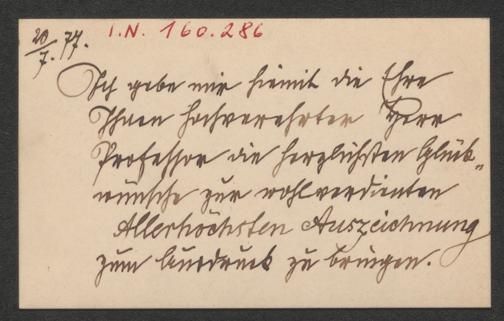 20/7. 77. I.N. 160.286
Ich gebe mir hiemit die Ehre
Ihnen hochverehrter Herr
Professor die herzlichsten Glück-
wünsche zur wohlverdienten
Allerhöchsten Auszeichnung
zum Ausdruck zu bringen.